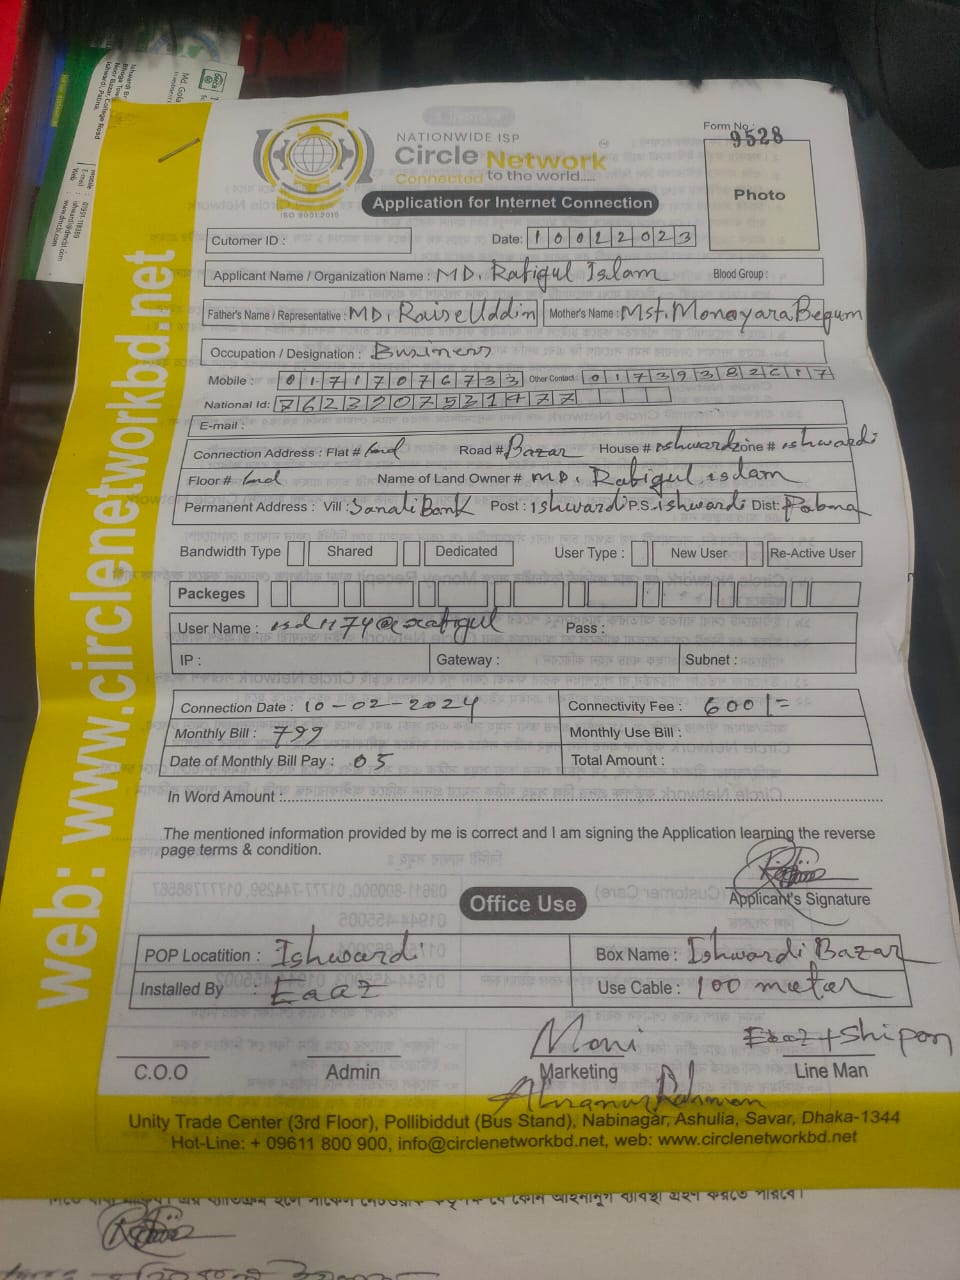 NATIONWIDE ISP
Circle Network
Connected to the world.....
ISO 9001:2015
Form No.:
9528
Photo
Application for Internet Connection
Cutomer ID :
Date: 10022023
Applicant Name / Organization Name : MD. Rafiqul Islam
Blood Group :
Father's Name / Representative : MD. Raise Uddin
Mother's Name : Mst. Monoyara Begum
Occupation / Designation : Business
Mobile : 01717076733
Other Contact : 01739382617
National Id: 7623207531477
E-mail :
Connection Address : Flat # Road # Bazar House # ishwardi zone # ishwardi
Floor # Name of Land Owner # MD. Rabiqul islam
Permanent Address : Vill : Sonali Bank Post : ishwardi P.S. ishwardi Dist: Pabna
Bandwidth Type Shared Dedicated User Type : New User Re-Active User
Packeges
User Name : Pass :
IP : Gateway : Subnet :
Connection Date : 10-02-2024
Connectivity Fee : 600/=
Monthly Bill : 799
Monthly Use Bill :
Date of Monthly Bill Pay : 05
Total Amount :
In Word Amount :
The mentioned information provided by me is correct and I am signing the Application learning the reverse
page terms & condition.
Applicant's Signature
Office Use
POP Locatition : Ishwardi
Box Name : Ishwardi Bazar
Installed By : Eaaz
Use Cable : 100 meter
Moni
Eaaz + Shipon
C.O.O
Admin
Marketing
Line Man
Unity Trade Center (3rd Floor), Pollibiddut (Bus Stand), Nabinagar, Ashulia, Savar, Dhaka-1344
Hot-Line: + 09611 800 900, info@circlenetworkbd.net, web: www.circlenetworkbd.net
web: www.circlenetworkbd.net